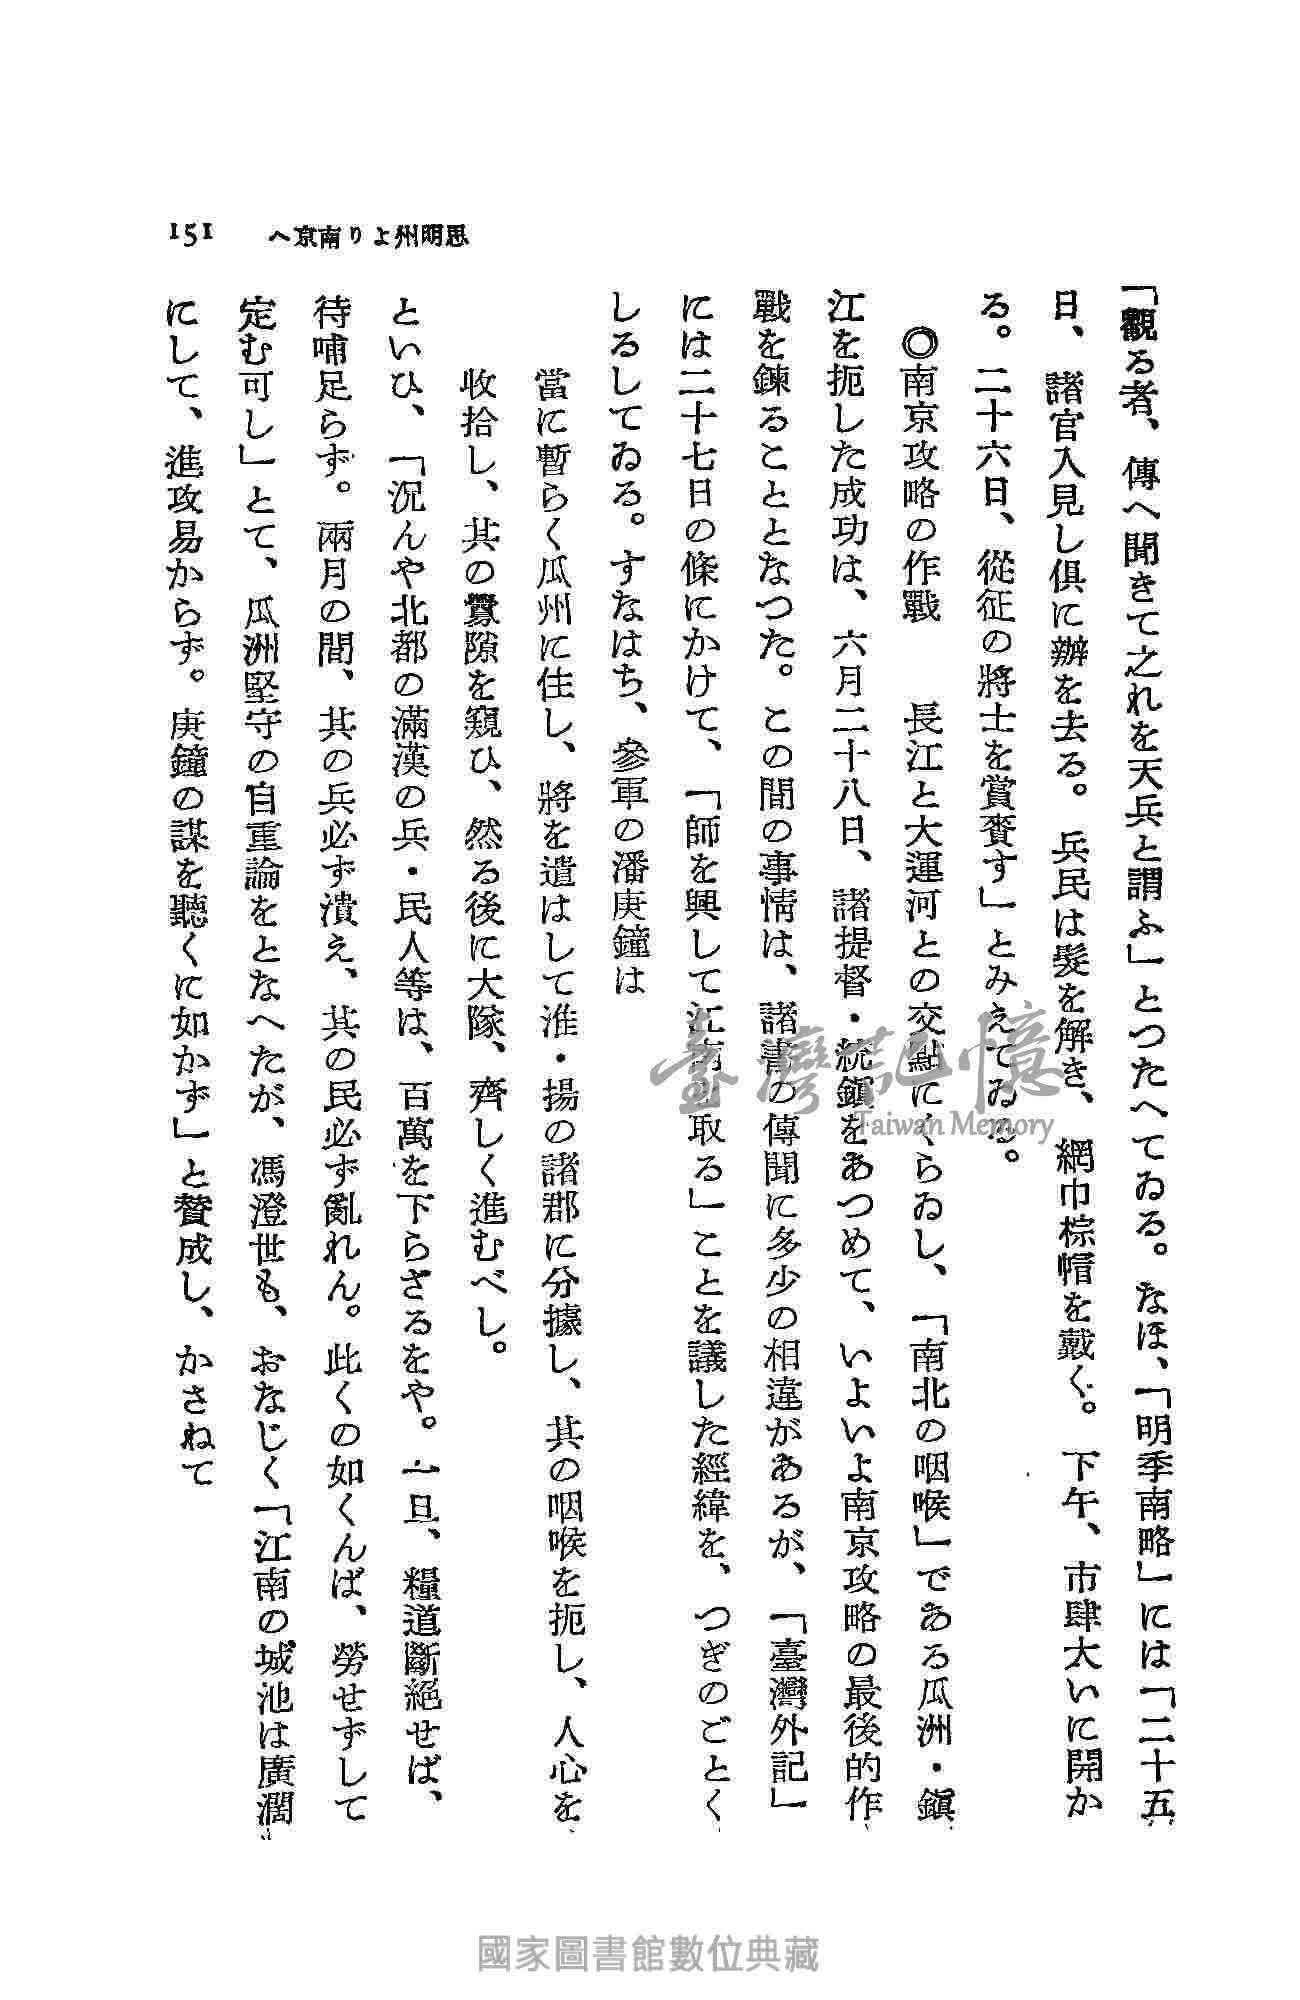 151 思明州より南京へ
「觀る者、傳へ聞きて之れを天兵と謂ふ」とつたへてゐる。なほ、「明季南略」には「二十五
日、諸官入見し俱に辮を去る。兵民は髮を解き、網巾棕帽を戴く。下午、市肆大いに開か
る。二十六日、從征の將士を賞賚す」とみえてゐる。
◎南京攻略の作戰 長江と大運河との交點にくらゐし、「南北の咽喉」である瓜洲・鎭
江を扼した成功は、六月二十八日、諸提督・統鎭をあつめて、いよいよ南京攻略の最後的作
戰を鍊ることとなつた。この間の事情は、諸書の傳聞に多少の相違があるが、「臺灣外記」
には二十七日の條にかけて、「師を興して江南を取る」ことを議した經緯を、つぎのごとく
しるしてゐる。すなはち、參軍の潘庚鐘は
當に暫らく瓜州に住し、將を遣はして淮・揚の諸郡に分據し、其の咽喉を扼し、人心を
收拾し、其の釁隙を窺ひ、然る後に大隊、齊しく進むべし。
といひ、「況んや北都の滿漢の兵・民人等は、百萬を下らざるをや。一旦、糧道斷絕せば、
待哺足らず。兩月の間、其の兵必ず潰え、其の民必ず亂れん。此くの如くんば、勞せずして
定む可し」とて、瓜洲堅守の自重論をとなへたが、馮澄世も、おなじく「江南の城池は廣濶
にして、進攻易からず。庚鐘の謀を聽くに如かず」と贊成し、かさねて
臺灣記憶
Taiwan Memory
國家圖書館數位典藏